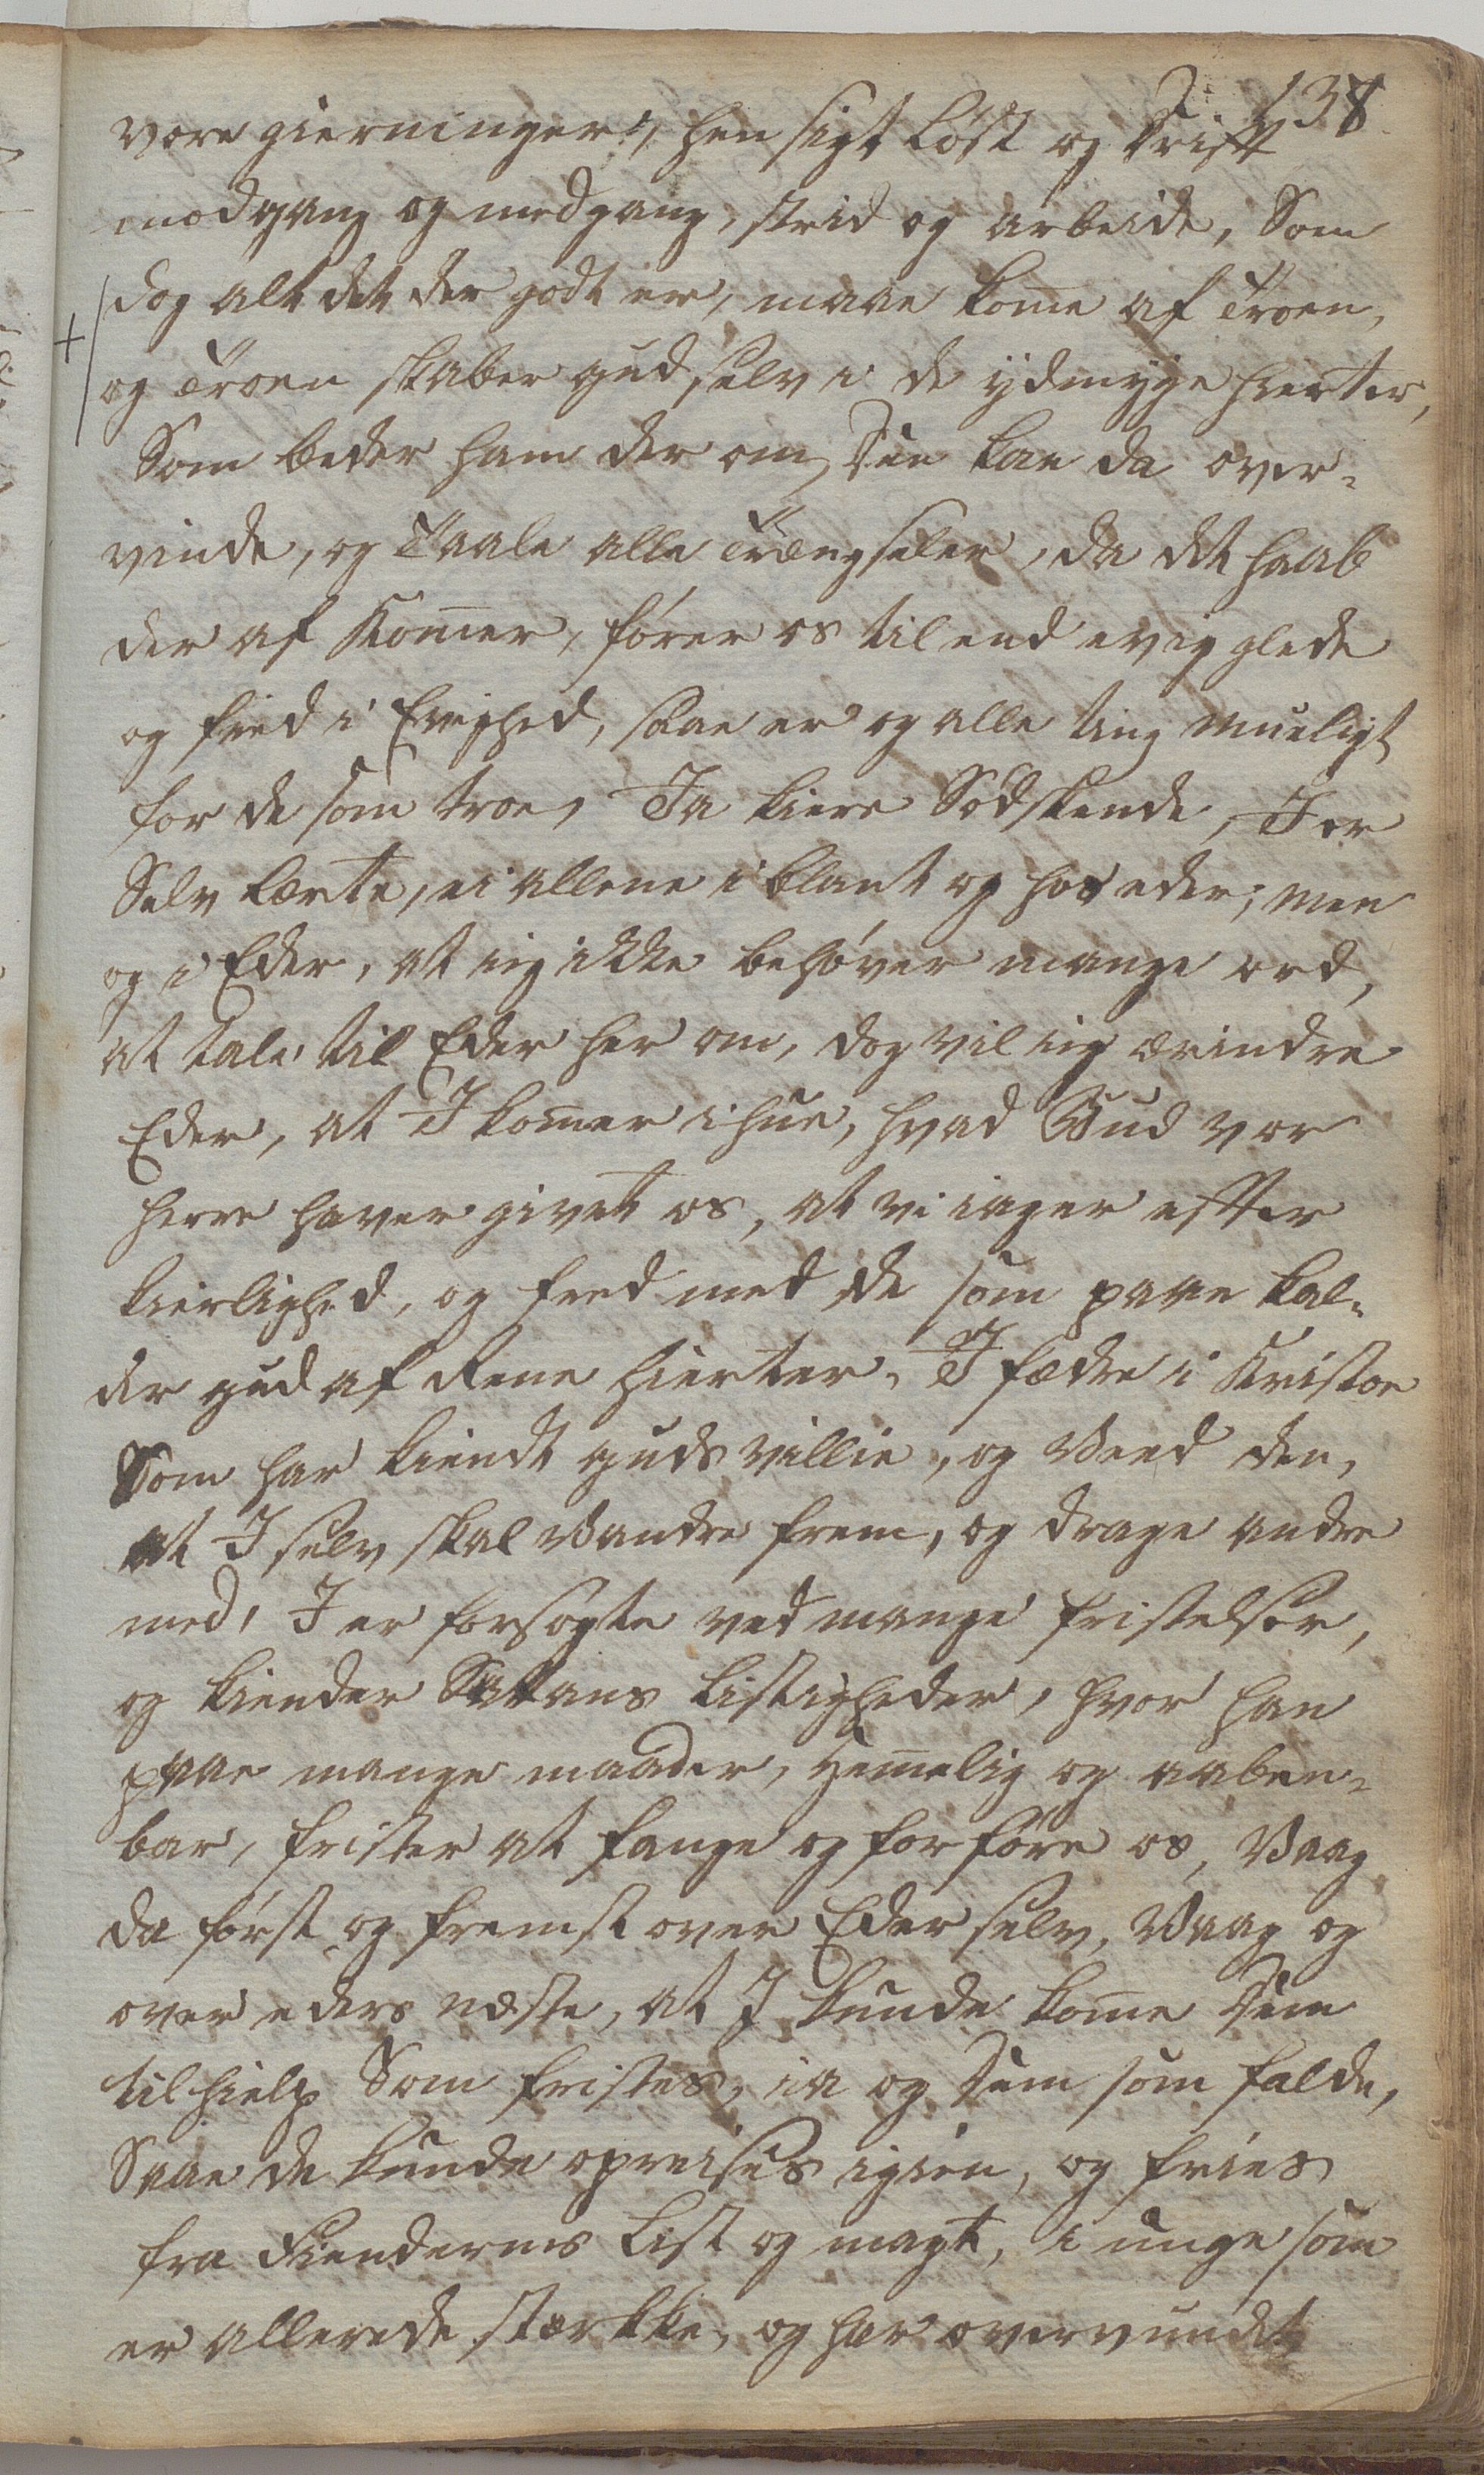 138
vore gierninger, hensigt løst og drift
modgang og medgang, strid og arbeide, Som
dog alt det der godt er, maae kome af Troen,
og Troen skaber gud selv i de ydmyge hierter,
Som beder ham der om, Din kan da over-
vinde, og Taale alle Trængseler, da det haab
der af Komer, fører os til end evig glede
og fred i Evighed, saae er og alle ting mueligt
for de som troe, Ja kiere Södskende, I er
Selv lærte, ei allene i blant og hos eder; men
og i Eder, at iig ikke behøver mange ord,
at tale til Eder her om, dog vil iig erindre
Eder, at I komer ihue, hvad Gud vor
herre haver givet os, at vi iager efter
kierlighed, og fred med de som paae kal-
der gud af Rene hierter, I fædre i Kristoe
Som har kiendt guds villie, og Veed den,
at I selv skal Vandre frem, og drage andre
med, I er forsøgte ved mange fristelser,
og kiender Satans listigheder, hvor han
paae mange maader, Hemelig og aaben-
bar, frister at fange og forføre os, Vaag
da først og fremst over Eder selv, Vaag og
over eders næste, at I kunde kome dem
til hielp Som fristes, ia og dem som falde,
Saae de kunde opreises igien, og fries
fra Fiendernes List og magt, i unge som
er allerede stærkke, og har overvundet